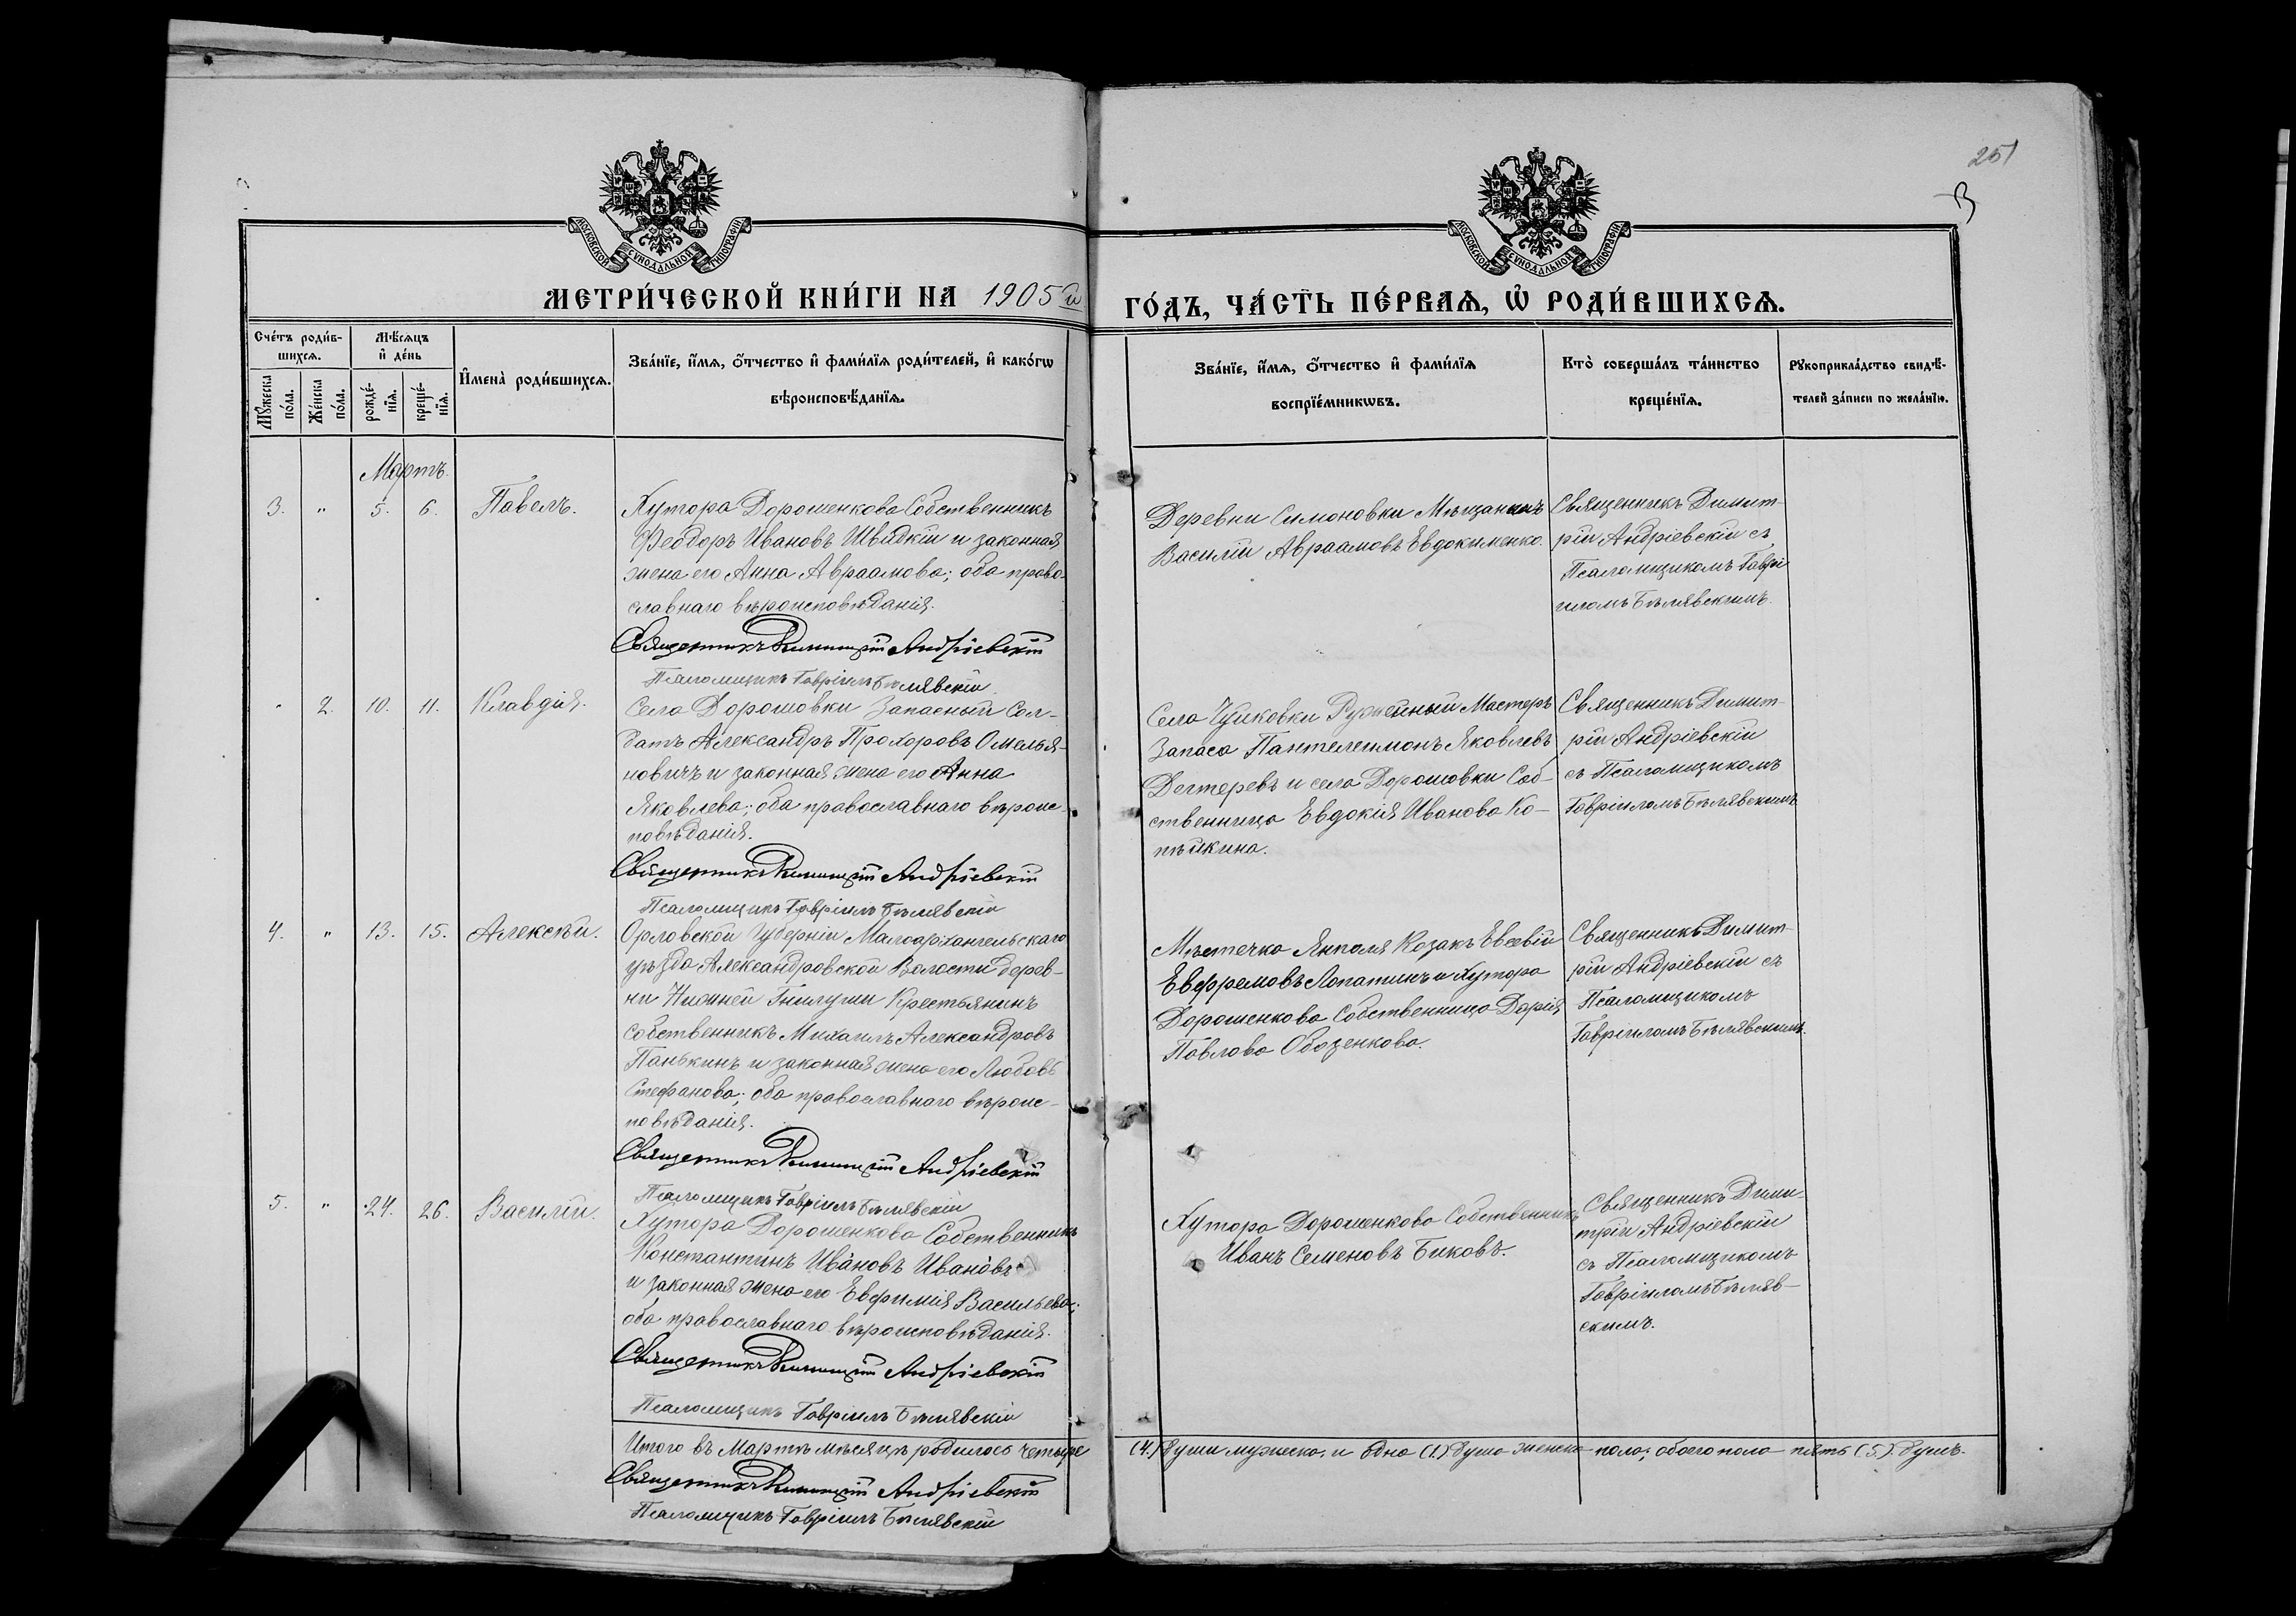 251
3
МОСКОВСКОЙ СѴНОДАЛЬНОЙ ТИПОГРАФІИ
МОСКОВСКОЙ СѴНОДАЛЬНОЙ ТИПОГРАФІИ
МЕТРИ́ЧЕСКОЙ КНИ́ГИ НА 1905й
ГО́ДЪ, ЧА́СТЬ ПЕ́РВАѦ, Ѡ҆ РОДИ́ВШИХСѦ.
Сче́тъ роди́в-
шихсѧ.
Мꙋ́жеска
по́ла.
Же́нска
по́ла.
Мѣ́сѧцъ
и҆ де́нь
рожде́-
нїѧ.
креще́-
нїѧ.
И҆мена̀ роди́вшихсѧ.
Зва́нїе, и҆́мѧ, ѻ҆́тчество и҆ фами́лїѧ роди́телей, и҆ како́гѡ
вѣ́роисповѣ́данїѧ.
Зва́нїе, и҆́мѧ, ѻ҆́тчество и҆ фами́лїѧ
воспрїе́мникѡвъ.
Кто̀ соверша́лъ та́инство
креще́нїѧ.
Рꙋкоприкла́дство свидѣ́-
телей за́писи по жела́нїю.
Мартъ.
3. " 5. 6. Павелъ.
Хутора Дорошенкова Собственникъ
Феодоръ Ивановъ Швидкій и законная
жена его Анна Авраамова; оба право-
славнаго вѣроисповѣданія.
Священникъ Димитрій Андріевскій
Псаломщикъ Гавріилъ Бѣлявскій
Деревни Симоновки Мѣщанинъ
Василій Авраамовъ Евдокименко.
Священникъ Димит-
рій Андріевскій съ
Псаломщикомъ Гаврі
иломъ Бѣлявскимъ.
" 2. 10. 11. Клавдія.
Села Дорошовки Запасный Сол-
датъ Александръ Прохоровъ Омелья-
новичъ и законная жена его Анна
Яковлева; оба православнаго вѣроис-
повѣданія.
Священникъ Димитрій Андріевскій
Псаломщикъ Гавріилъ Бѣлявскій
Села Чуйковки Ружейный Мастеръ
Запаса Пантелеимонъ Яковлевъ
Дегтеревъ и села Дорошовки Соб-
ственница Евдокія Иванова Ко-
пѣйкина.
Священникъ Димит-
рій Андріевскій
съ Псаломщикомъ
Гавріиломъ Бѣлявскимъ
4. " 13. 15. Алексѣй.
Орловской Губерніи Малоархангельскаго
уѣзда Александровской Волости дерев-
ни Нижней Гнилуши Крестьянинъ
собственникъ Михаилъ Александровъ
Панькинъ и законная жена его Любовь
Стефанова; оба православнаго вѣроис-
повѣданія.
Священникъ Димитрій Андріевскій
Псаломщикъ Гавріилъ Бѣлявскій
Мѣстечка Янполя Козакъ Евсевій
Евфремовъ Лопатинъ и Хутора
Дорошенкова Собственница Дарія
Павлова Обозенкова.
Священникъ Димит-
рій Андріевскій съ
Псаломщикомъ
Гавріиломъ Бѣлявскимъ.
5. " 24. 26. Василій.
Хутора Дорошенкова Собственникъ
Константинъ Ивановъ Ивановъ
и законная жена его Евфимія Васильева;
оба православнаго вѣроисповѣданія.
Священникъ Димитрій Андріевскій
Псаломщикъ Гавріилъ Бѣлявскій
Хутора Дорошенкова Собственникъ
Иванъ Семеновъ Биковъ.
Священникъ Дими-
трій Андріевскій
съ Псаломщикомъ
Гавріиломъ Бѣляв-
скимъ.
Итого въ Мартѣ мѣсяцѣ родилось четыре
(4.) души мужеска, и одна (1.) душа женска пола; обоего пола пять (5.) душъ.
Священникъ Димитрій Андріевскій
Псаломщикъ Гавріилъ Бѣлявскій